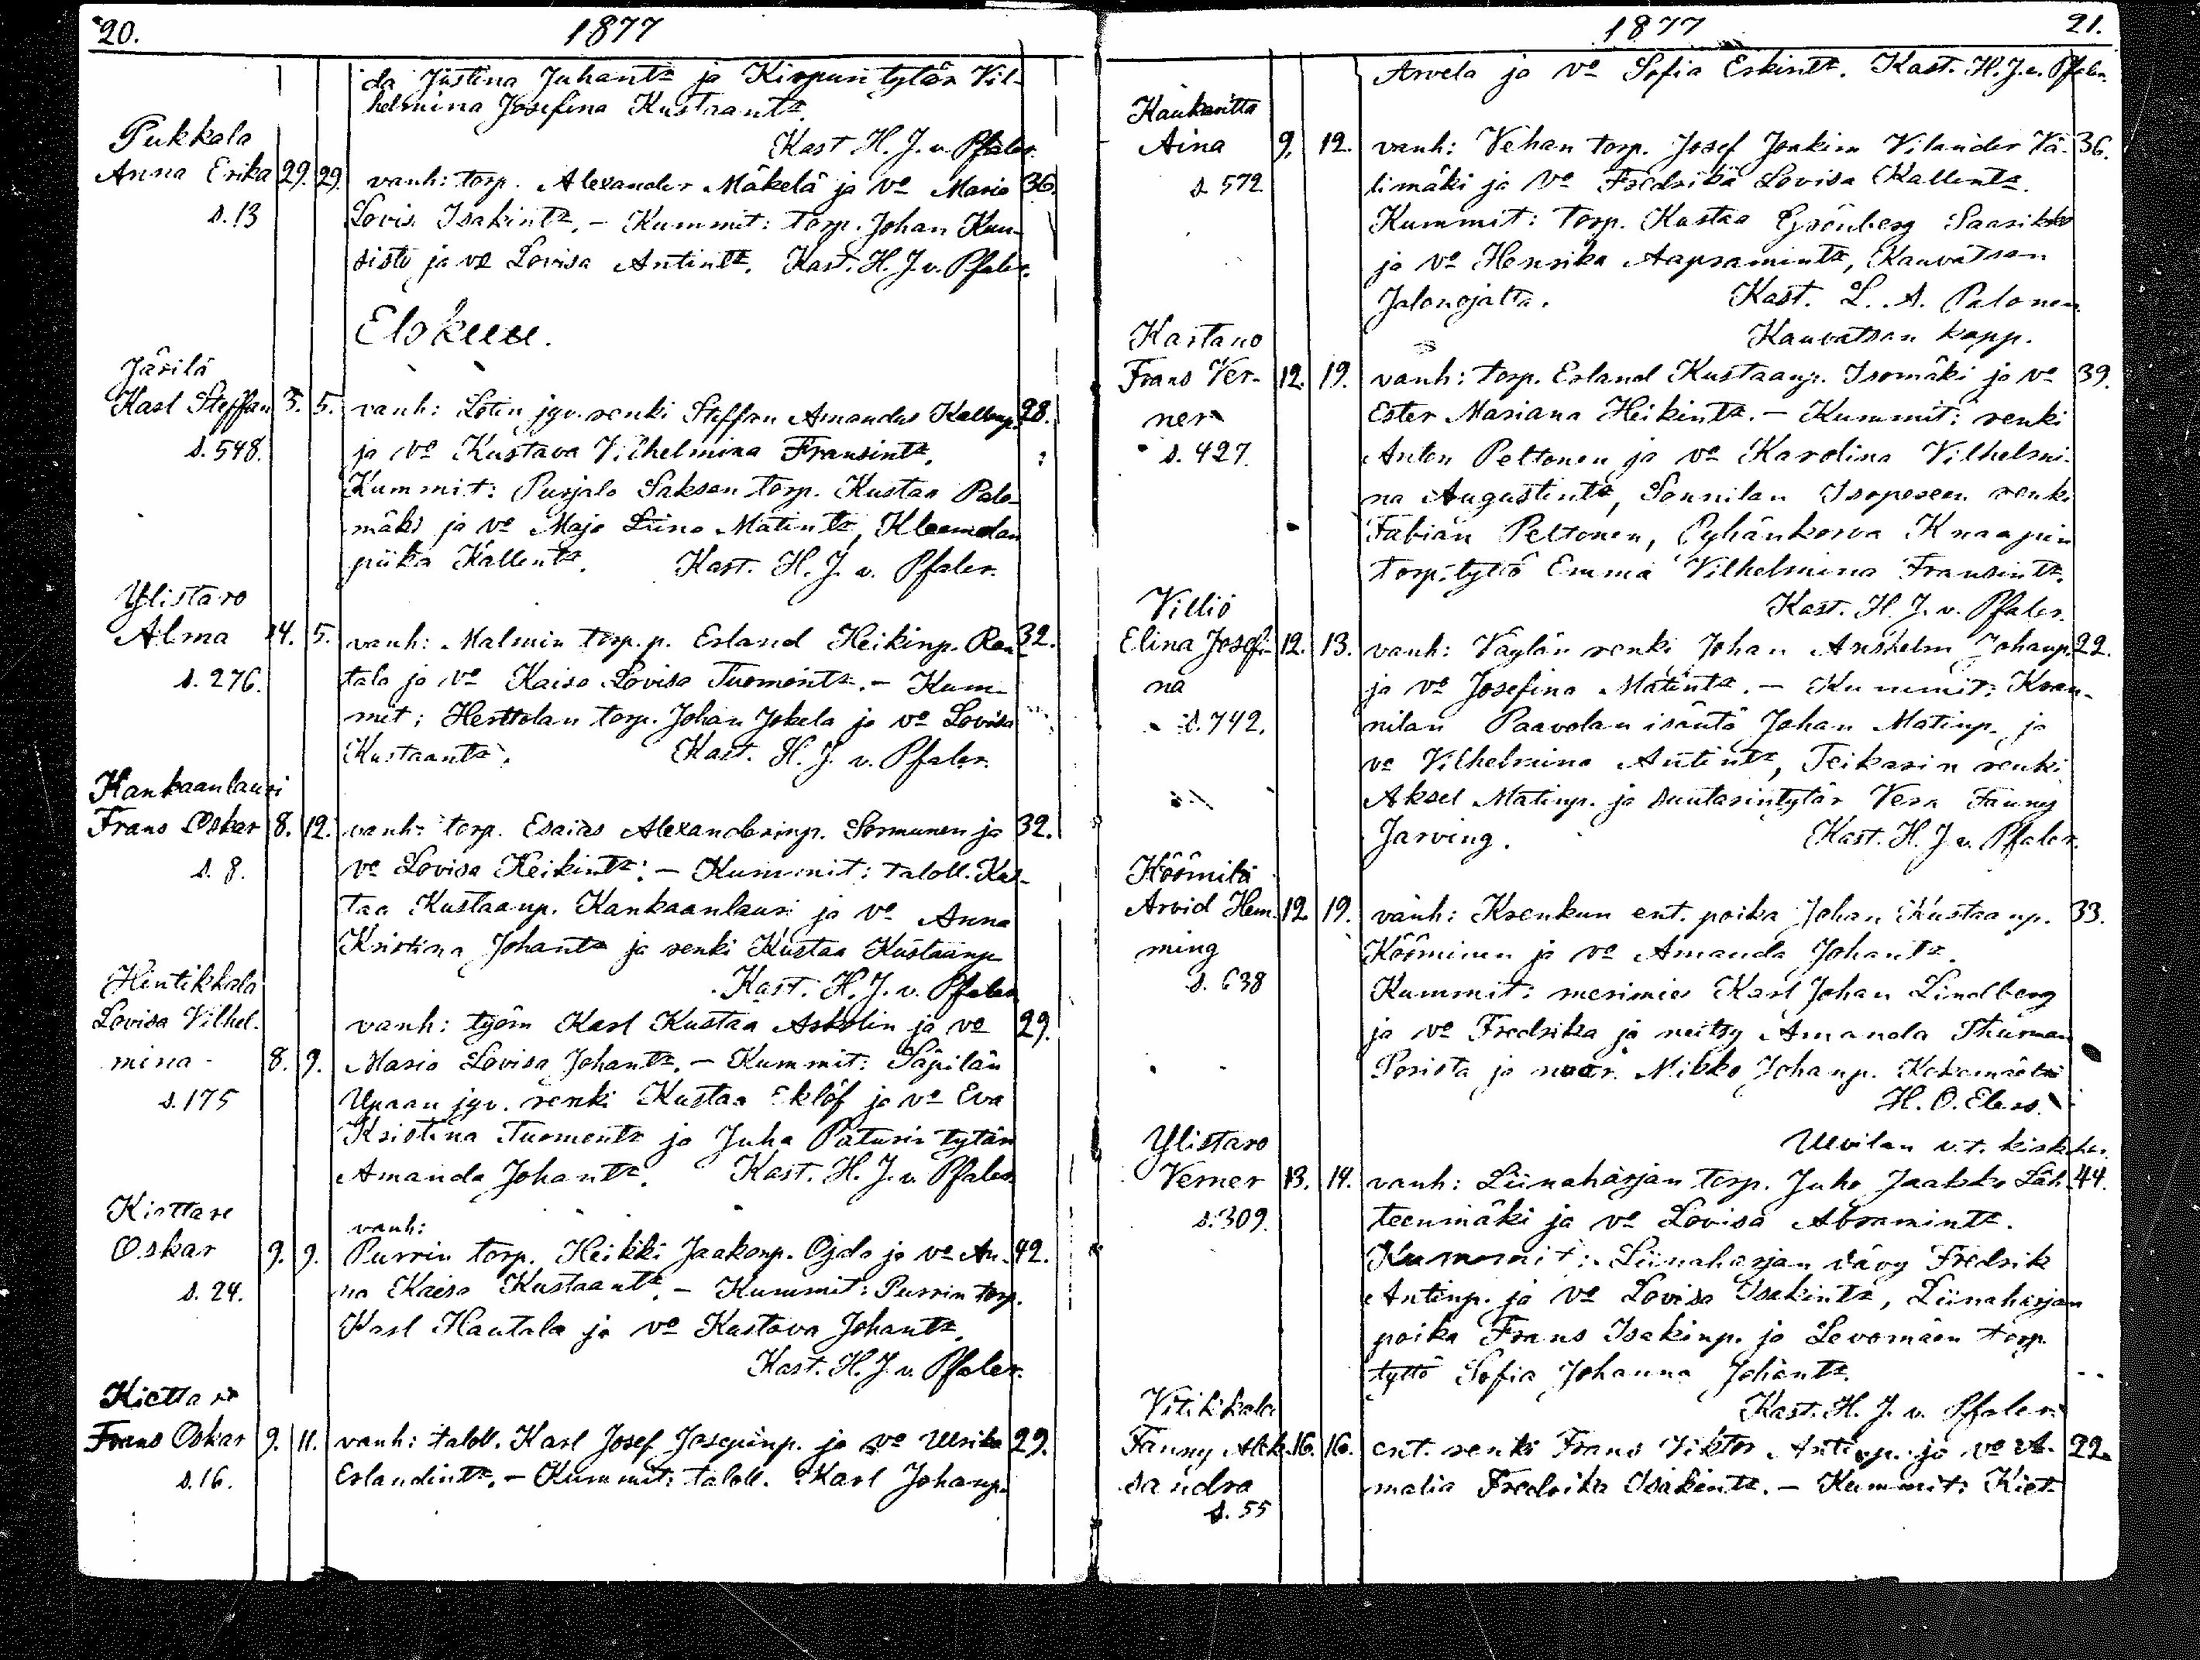 20. 1877
da Justina Juhantr ja Kirpun tytär Vil-
helmina Josefina Kustaantr.
Kast H. J. v. Pfaler.
Pukkala
Anna Erika 29. 29. vanh: torp. Alexander Mäkelä ja vo Maria 36.
s. 13 Lovis. Isakintr. – Kummit: torp. Johan Kuu-
sisto ja vo Lovisa Antintr. Kast. H. J. v. Pfaler.
Elokuu.
Järilä
Karl Steffan 3. 5. vanh: jyv. renki Steffan Amandus Kallenp. 28.
s. 548. ja vo Kustava Vilhelmina Fransintr.
Kummit: Purjala Saksan torp. Kustaa Palo-
mäki ja vo Maja Liina Matintr, Kleemolan
piika Kallentr. Kast. H. J. v. Pfaler.
Ylistaro
Alma 24. 5. vanh: Malmin torp. p. Erland Heikinp. Ran- 32.
s. 276. tala ja vo Kaisa Lovisa Tuomontr. – Kum-
mit: Herttolan torp. Johan Jokela ja vo Lovisa
Kustaantr. Kast. H. J. v. Pfaler.
Kankaanlauri
Frans Oskar 8. 12. vanh: torp. Esaias Alexanderinp. Sormunen ja 32.
s. 8. vo Lovisa Heikintr. – Kummit: taloll. Kus-
taa Kustaanp. Kankaanlauri ja vo Anna
Kristina Johantr ja renki Kustaa Kustaanp
Kast. H. J. v. Pfaler
Hintikkala
Lovisa Vilhel- vanh: työm Karl Kustaa Askolin ja vo 29.
mina - 8. 9. Maria Lovisa Johantr. – Kummit: Säpilän
s. 175 Upaan jyv. renki Kustaa Eklöf ja vo Eva
Kristina Tuomontr ja Juha Paturin tytär
Amanda Johantr. Kast. H. J. v. Pfaler
Kiettare vanh:
Oskar 9. 9. Purrin torp. Heikki Jaakonp. Ojala ja vo An- 42.
s. 24. na Kaisa Kustaantr. – Kummit: Purrin torp.
Karl Hautala ja vo Kustava Johantr.
Kast. H. J. v. Pfaler.
Kiettare
Frans Oskar 9. 11. vanh: taloll. Karl Josef Josepinp. ja vo Ulrika 29.
s. 16. Erlandintr. – Kummit: taloll. Karl Johanp.
1877 21.
Arvela ja vo Sofia Erkintr. Kast. H. J. v. Pfaler.
Kaukaritta
Aina 9. 12. vanh: Vehan torp. Josef Joakim Vilander Vä- 36.
s. 572 limäki ja vo Fredrika Lovisa Kallentr.
Kummit: torp. Kustaa Grönberg Saarikko
ja vo Henrika Aapramintr, Kauvatsan
Jalonojalta. Kast. L. A. Palonen
Kauvatsan kapp.
Kastano
Frans Ver- 12. 19. vanh: torp. Erland Kustaanp. Isomäki ja vo 39.
ner Ester Mariana Heikintr. – Kummit: renki
s. 427. Anton Peltonen ja vo Karolina Vilhelmi-
na Augustintr, Sonnilan Isopeseen renki
Fabian Peltonen, Pyhänkorva Knaapin
torp. tyttö Emma Vilhelmina Fransintr.
Kast. H. J. v. Pfaler.
Villiö
Elina Josefi- 12. 13. vanh: Väylän renki Johan Anshelm Johanp. 22.
na ja vo Josefina Matintr. – Kummit: Kran-
s. 742. nilan Paavolan isäntä Johan Matinp. ja
vo Vilhelmina Antintr, Teikarin renki
Aksel Matinp. ja suutarintytär Vera Fanny
Jarving. Kast. H. J. v. Pfaler.
Köömilä
Arvid Hem- 12 19. vanh: Krenkun ent. poika Johan Kustaanp. 33.
ming Kööminen ja vo Amanda Johantr.
s. 638 Kummit: merimies Karl Johan Lindberg
ja vo Fredrika ja neitsy Amanda Thurman
Porista ja nuor. Mikko Johanp. Kokemäeltä
H. O. Elers.
Ulvilan v.t. kirkher.
Ylistaro
Verner 13. 14. vanh: Liinaharjan torp. Juho Jaakko Läh- 44.
s. 309. teenmäki ja vo Lovisa Abramintr.
Kummit: Liinaharjan vävy Fredrik
Antinp. ja vo Lovisa Isakintr, Liinaharjan
poika Frans Isakinp. ja Levomäen torp.
tyttö Sofia Johanna Johantr.
Kast. H. J. v. Pfaler.
Vitikkala
Fanny Alek- 16. 16. ent. renki Frans Viktor Antinp. ja vo A- 22.
sandra malia Fredrika Isakintr. – Kummit: Kiet-
s. 55